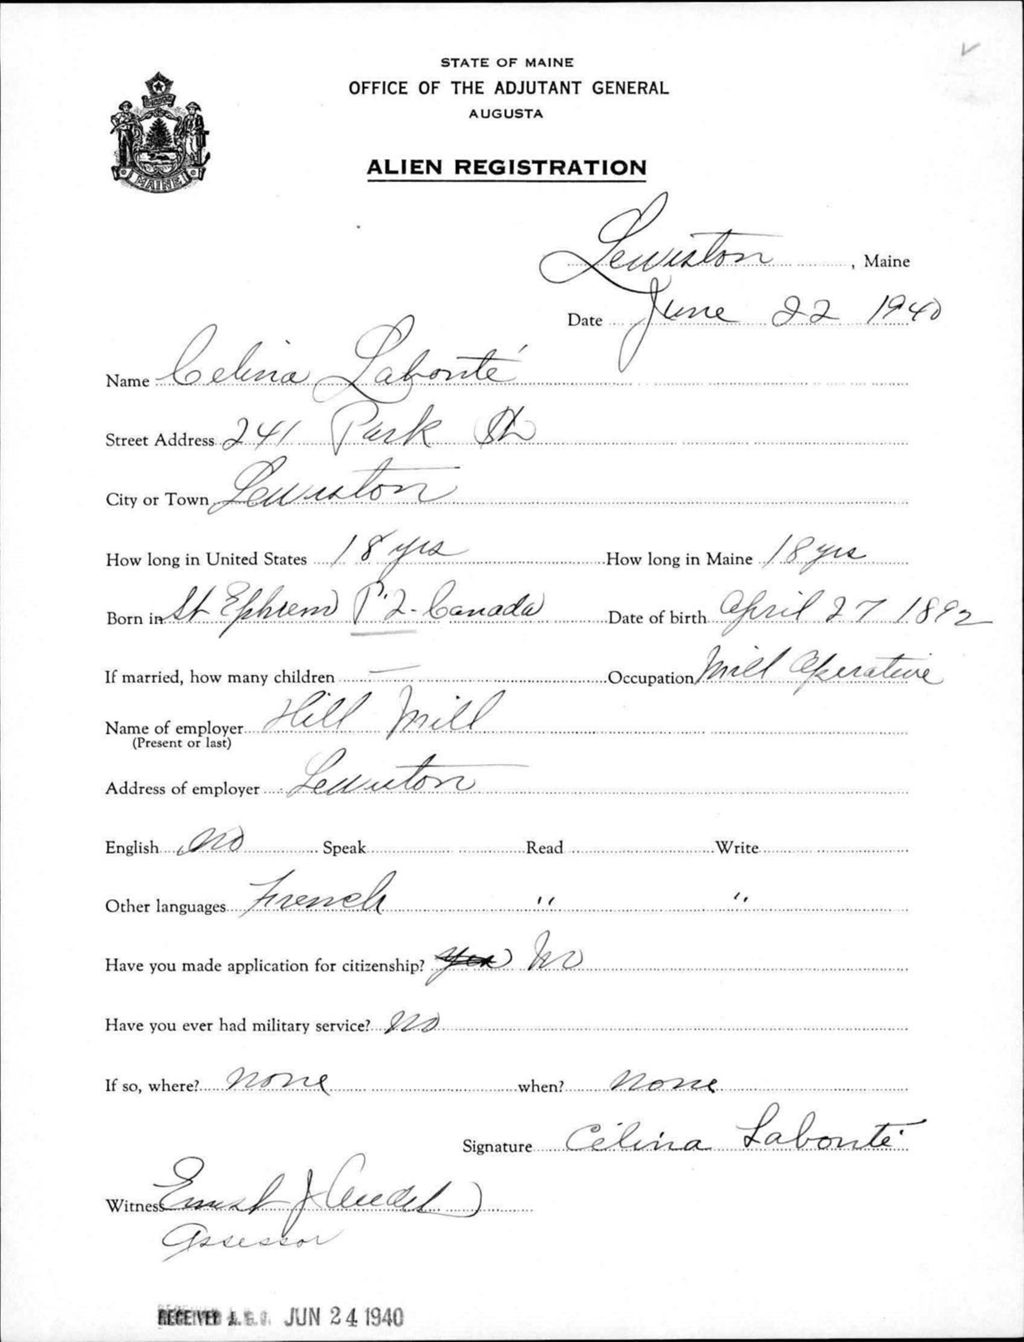 STATE OF MAINE
OFFICE OF THE ADJUTANT GENERAL
AUGUSTA
ALIEN REGISTRATION
MAINE
Lewiston, Maine
Date June 22 1940
Name Celina Labonté
Street Address 241 Park St
City or Town Lewiston
How long in United States 18 yrs How long in Maine 18 yrs
Born in St Ephrem P.Q. Canada Date of birth April 27 1892
If married, how many children — Occupation Mill Operative
Name of employer Hill Mill
(Present or last)
Address of employer Lewiston
English No Speak Read Write
Other languages French " "
Have you made application for citizenship? Yes No
Have you ever had military service? No
If so, where? None when? None
Signature Célina Labonté
Witness Ernest J
Assessor
RECEIVED A.G.O. JUN 24 1940